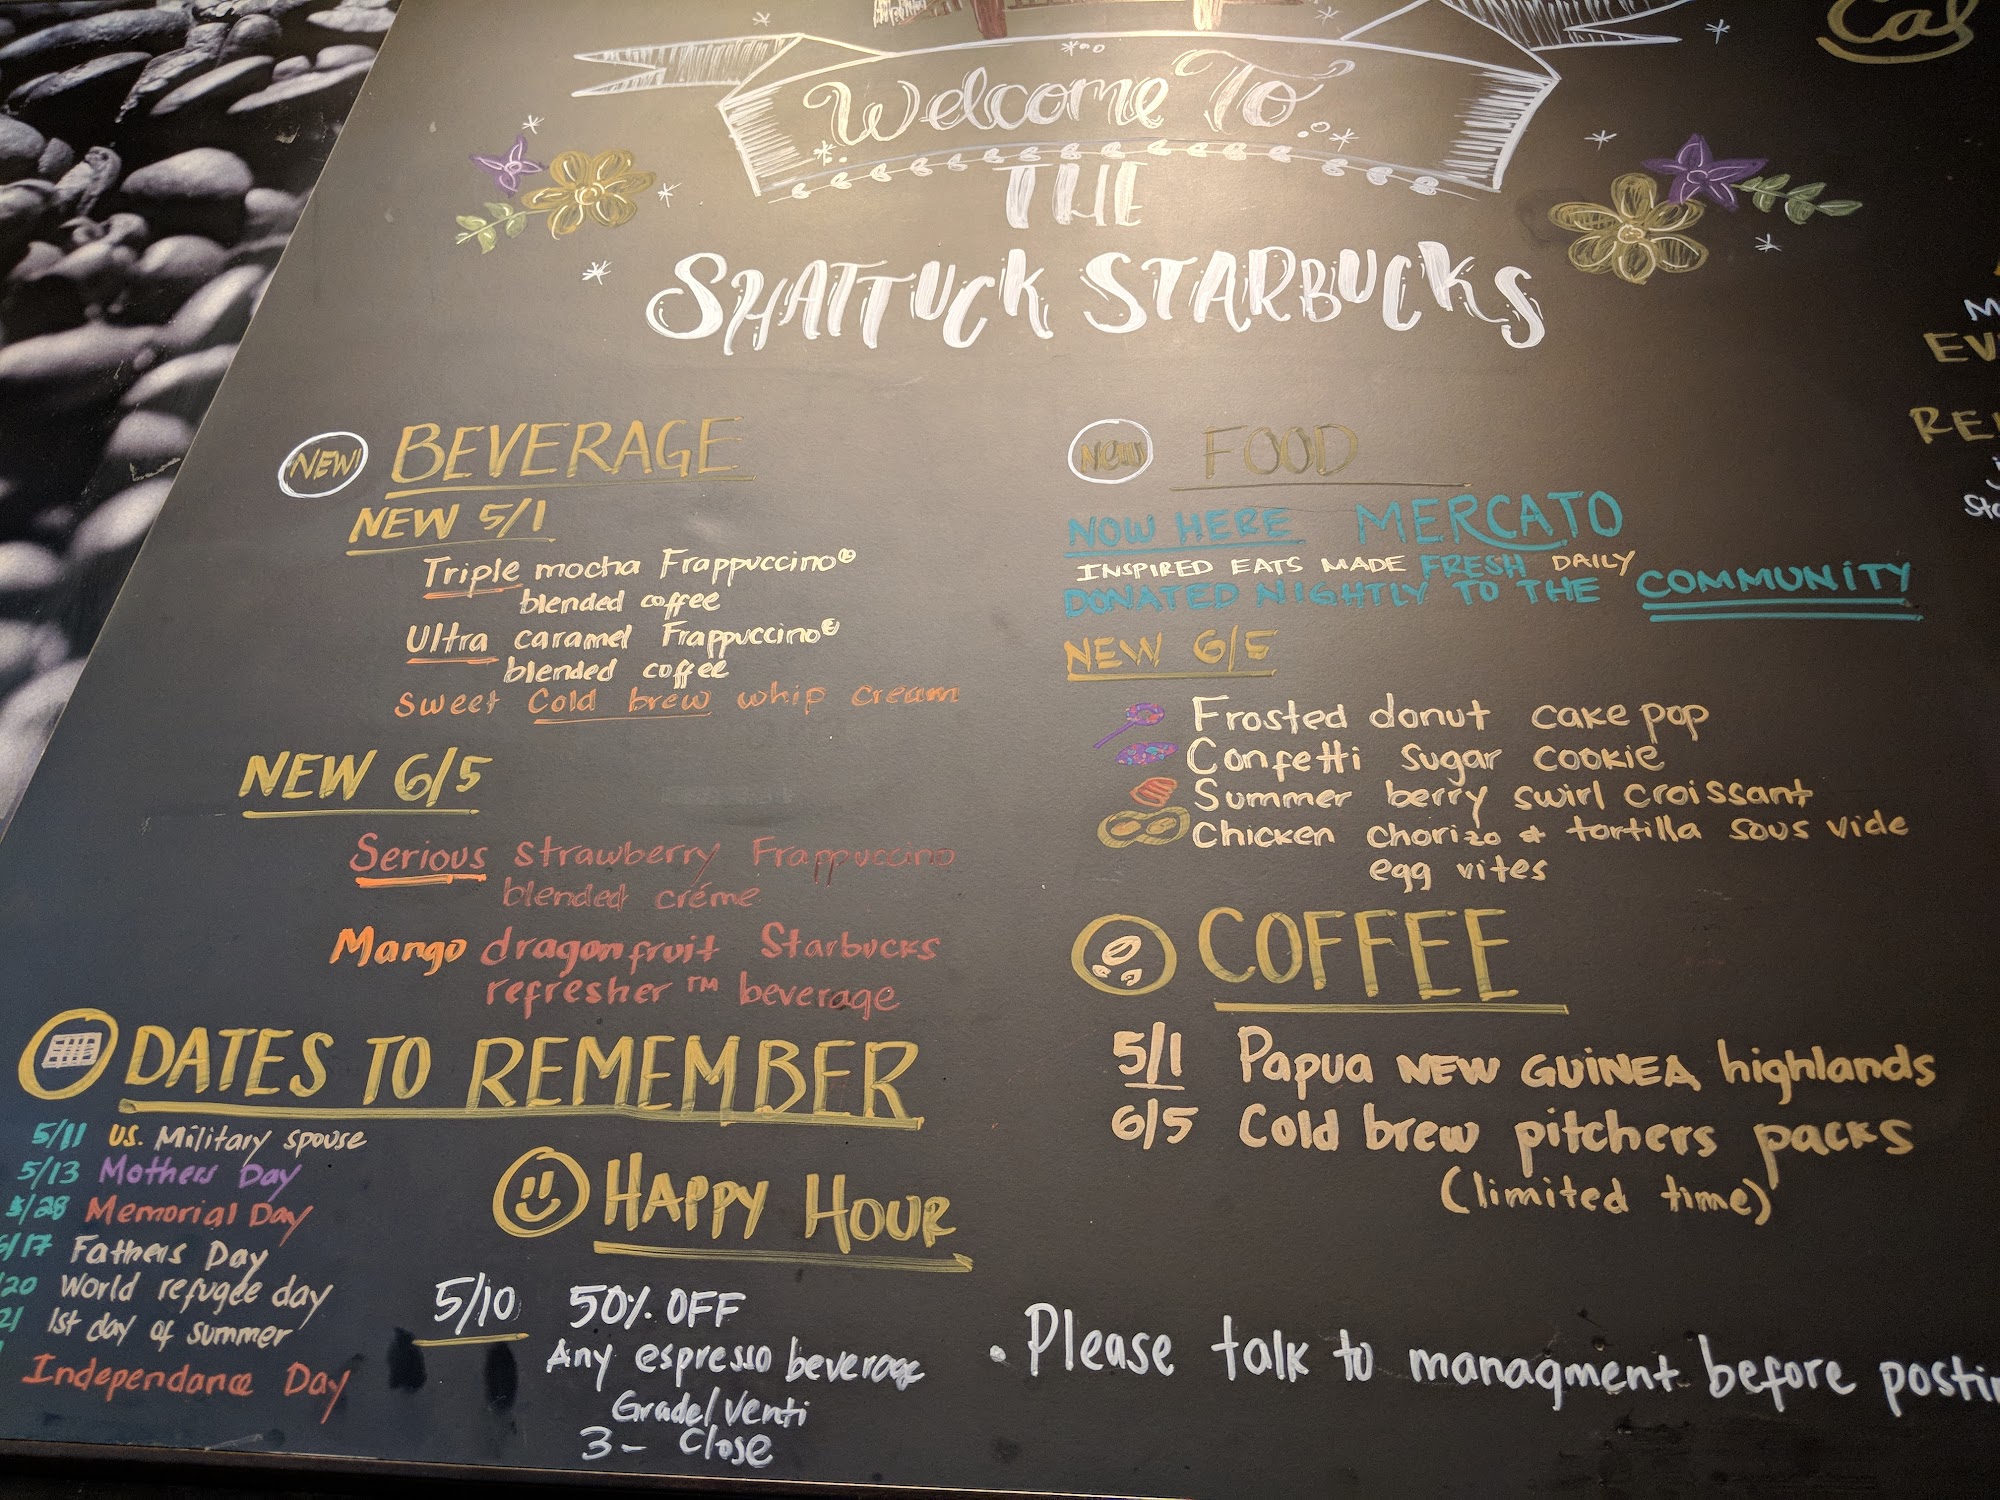 Cal
Welcome To
THE
SHATTUCK STARBUCKS
NEW! BEVERAGE
NEW 5/1
Triple mocha Frappuccino®
blended coffee
Ultra caramel Frappuccino®
blended coffee
Sweet Cold brew whip cream
NEW 6/5
Serious strawberry Frappuccino
blended créme
Mango dragonfruit Starbucks
refresher™ beverage
DATES TO REMEMBER
5/11 US. Military spouse
5/13 Mothers Day
5/28 Memorial Day
6/17 Fathers Day
/20 World refugee day
21 1st day of summer
Independance Day
HAPPY HOUR
5/10 50% OFF
Any espresso beverage
Grade/Venti
3- Close
NEW FOOD
NOW HERE MERCATO
INSPIRED EATS MADE FRESH DAILY
DONATED NIGHTLY TO THE COMMUNITY
NEW 6/5
Frosted donut cake pop
Confetti sugar cookie
Summer berry swirl croissant
Chicken chorizo & tortilla sous vide
egg vites
COFFEE
5/1 Papua NEW GUINEA highlands
6/5 Cold brew pitchers packs
(limited time)
• Please talk to managment before postin